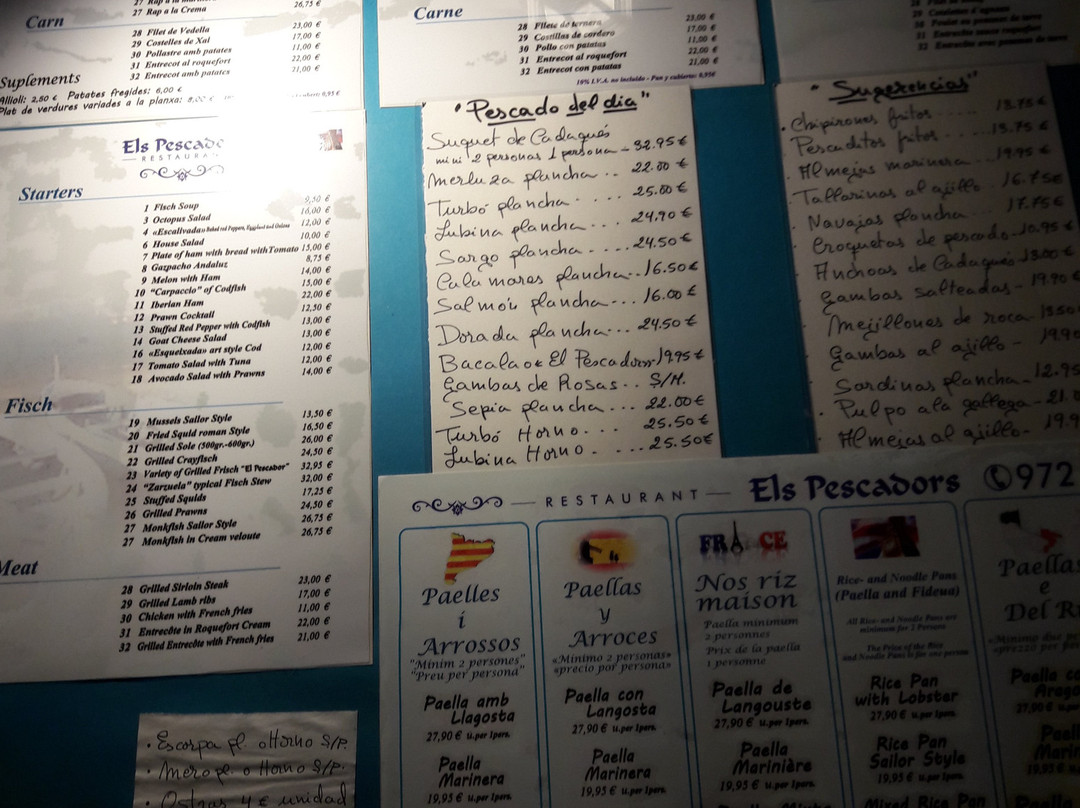 27 Rap a la Crema 26,75 €
Carn
28 Filet de Vedella 23,00 €
29 Costelles de Xai 17,00 €
30 Pollastre amb patates 11,00 €
31 Entrecot al roquefort 22,00 €
32 Entrecot amb patates 21,00 €
Suplements
Allioli: 2,50 € Patates fregides: 6,00 €
Plat de verdures variades a la planxa:
Carne
28 Filete de ternera 23,00 €
29 Costillas de cordero 17,00 €
30 Pollo con patatas 11,00 €
31 Entrecot al roquefort 22,00 €
32 Entrecot con patatas 21,00 €
10% I.V.A. no incluido - Pan y cubierto: 0,95€
Els Pescado
RESTAURAN
Starters
1 Fisch Soup 9,50 €
3 Octopus Salad 16,00 €
4 «Escalivada» Baked red Peppers, Eggplant and Onions 12,00 €
6 House Salad 10,00 €
7 Plate of ham with bread withTomato 15,00 €
8 Gazpacho Andaluz 8,75 €
9 Melon with Ham 14,00 €
10 "Carpaccio" of Codfish 15,00 €
11 Iberian Ham 22,00 €
12 Prawn Cocktail 12,50 €
13 Stuffed Red Pepper with Codfish 13,00 €
14 Goat Cheese Salad 13,00 €
16 «Esqueixada» art style Cod 12,00 €
17 Tomato Salad with Tuna 12,00 €
18 Avocado Salad with Prawns 14,00 €
Fisch
19 Mussels Sailor Style 13,50 €
20 Fried Squid roman Style 16,50 €
21 Grilled Sole (500gr.-600gr.) 26,00 €
22 Grilled Crayfisch 24,50 €
23 Variety of Grilled Frisch "El Pescador" 32,95 €
24 "Zarzuela" typical Fisch Stew 32,00 €
25 Stuffed Squids 17,25 €
26 Grilled Prawns 24,50 €
27 Monkfish Sailor Style 26,75 €
27 Monkfish in Cream veloute 26,75 €
Meat
28 Grilled Sirloin Steak 23,00 €
29 Grilled Lamb ribs 17,00 €
30 Chicken with French fries 11,00 €
31 Entrecôte in Roquefort Cream 22,00 €
32 Grilled Entrecôte with French fries 21,00 €
"Pescado del dia"
Suquet de Cadaqués
mini 2 personas 1 persona - 32.95 €
Merluza plancha .. 22.00 €
Turbó plancha .... 25.00 €
Lubina plancha ... 24.90 €
Sargo plancha .... 24.50 €
Calamares plancha .. 16.50 €
Salmón plancha ... 16.00 €
Dorada plancha ... 24.50 €
Bacalao El Pescador 19.95 €
Gambas de Rosas .. S/M.
Sepia plancha ... 22.00 €
Turbó Horno .... 25.50 €
Lubina Horno ..... 25.50 €
"Sugerencias"
· Chipirones fritos .... 13.75 €
· Pescaditos fritos .... 13.75 €
· Almejas marinera ... 19.95 €
· Tallarinas al ajillo .. 16.75 €
· Navajas plancha .... 17.75 €
· Croquetas de pescado - 10.95 €
· Anchoas de Cadaqués 13.00 €
· Gambas salteadas - 19.90 €
· Mejillones de roca - 13.50
· Gambas al ajillo - 19.90
· Sardinas plancha - 12.95
· Pulpo a la gallega - 21.0
· Almejas al ajillo - 19.9
RESTAURANT Els Pescadors 972
Paelles
i
Arrossos
"Mínim 2 persones"
"Preu per persona"
Paella amb
Llagosta
27,90 € u.per 1pers.
Paella
Marinera
19,95 € u.per 1pers.
Paellas
y
Arroces
«Mínimo 2 personas»
«precio por persona»
Paella con
Langosta
27,90 € u.per 1pers.
Paella
Marinera
19,95 € u.per 1pers.
FRANCE
Nos riz
maison
Paella minimum
2 personnes
Prix de la paella
1 personne
Paella de
Langouste
27,90 € u.per 1pers.
Paella
Marinière
19,95 € u.per 1pers.
Rice- and Noodle Pans
(Paella and Fideua)
All Rice- and Noodle Pans are
minimum for 2 Persons
The Price of the Rice
and Noodle Pans is for one person
Rice Pan
with Lobster
27,90 € u.per 1pers.
Rice Pan
Sailor Style
19,95 € u.per 1pers.
Mixed Rice Pan
Paellas
e
Del R
«Minimo due pe
«prezzo per per
Paella co
Arago
27,90 € u.per
Paell
Marin
19,95 € u.per
· Escorpa pl. o Horno S/P.
· Mero pl. o Horno S/P.
· Ostras 4 € unidad